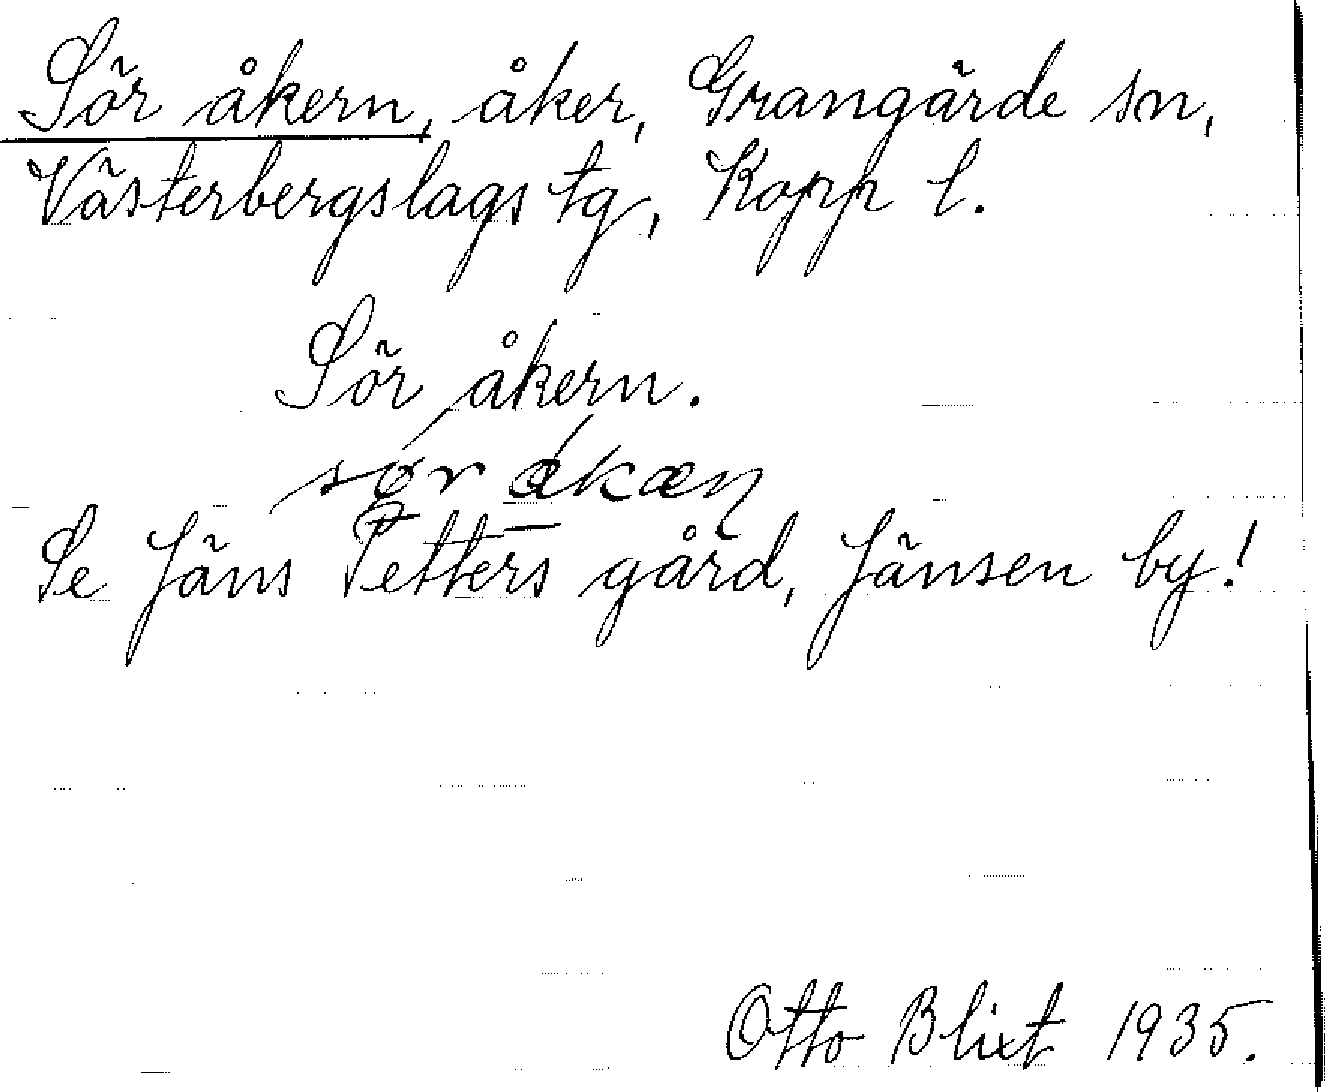 Sör åkern, åker, Grangärde sn,
Västerbergslags tg, Kopp l.
Sör åkern.
Se Jäns Petters gård, Jänsen by!
Otto Blixt 1935.